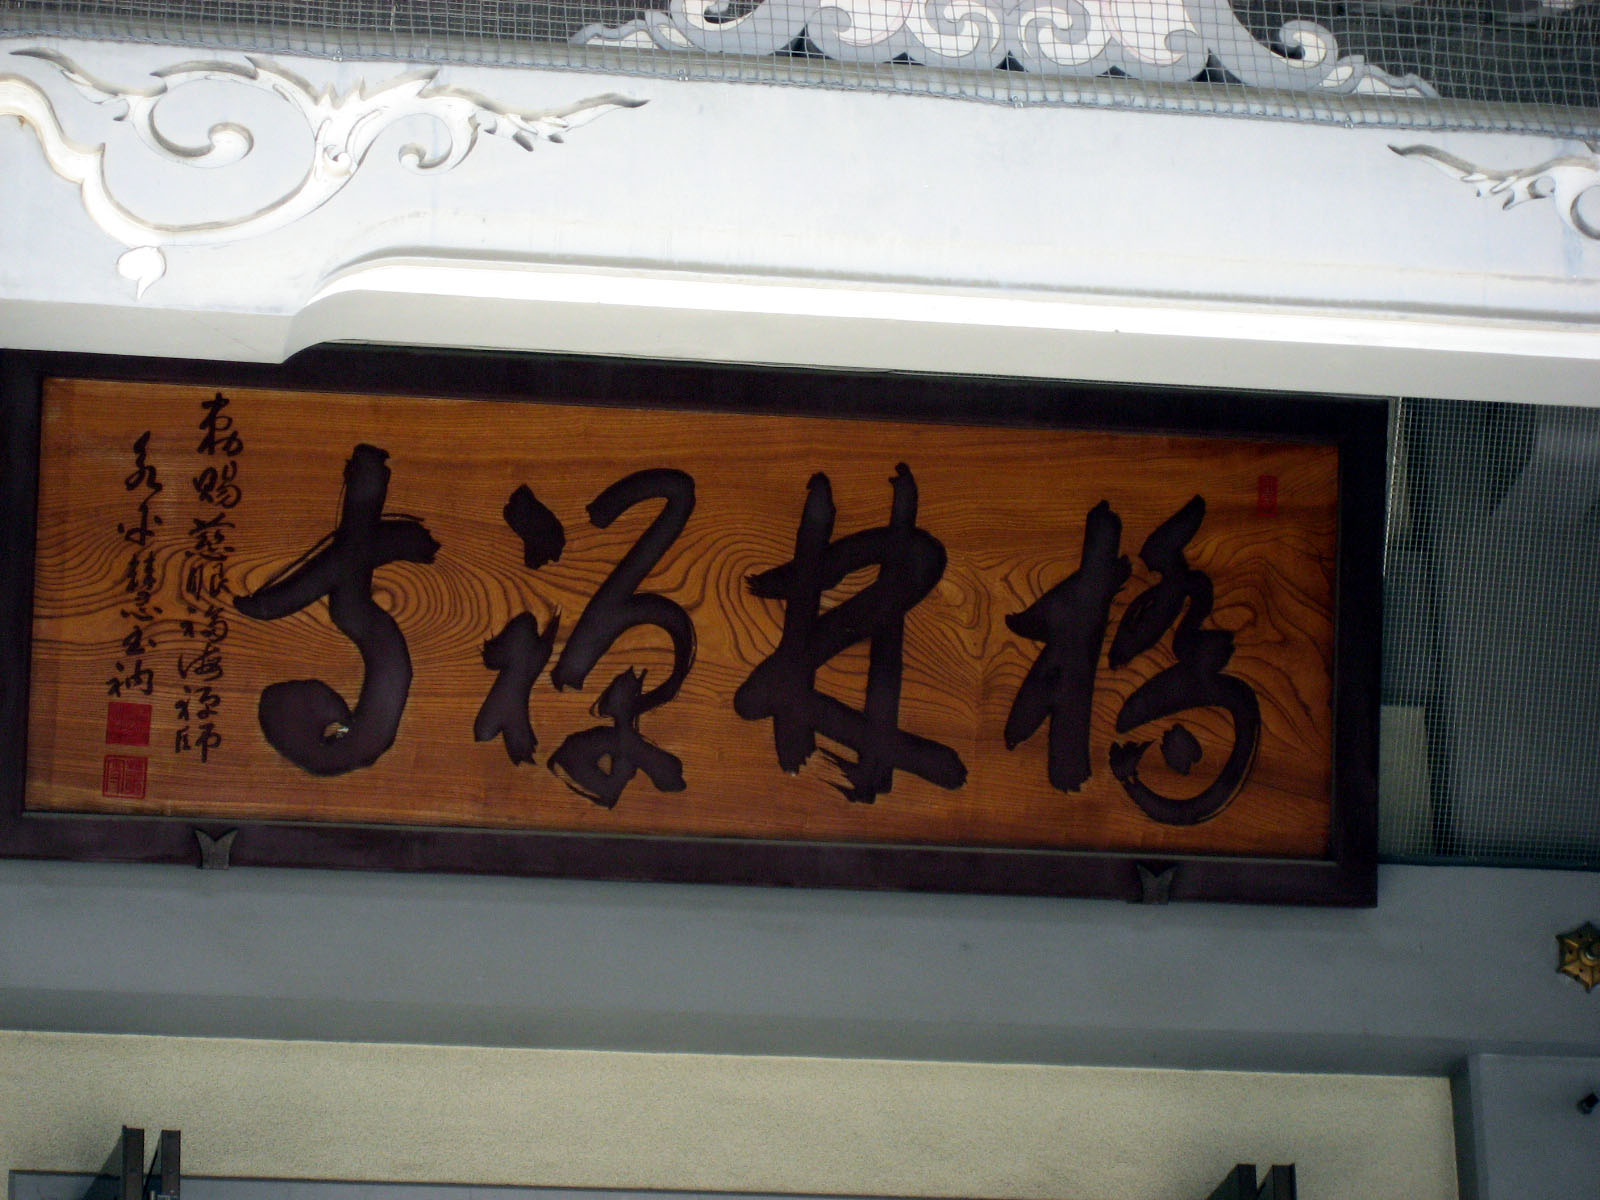 橋林禅寺
勅賜慈眼福海禅師
永平慧玉衲